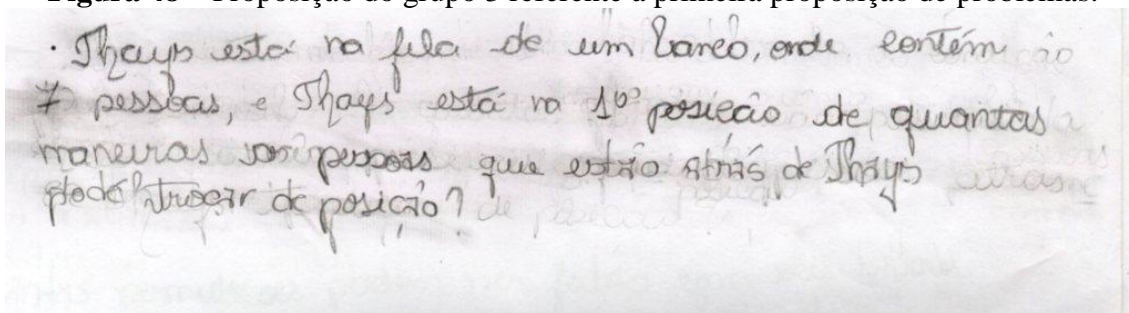 Figura 48 – Proposição do grupo 3 referente à primeira proposição de problemas.
· Thays está na fila de um banco, onde contém
7 pessoas, e Thays está na 1º posição de quantas
maneiras pessoas que estão atrás de Thays
pode trocar de posição?